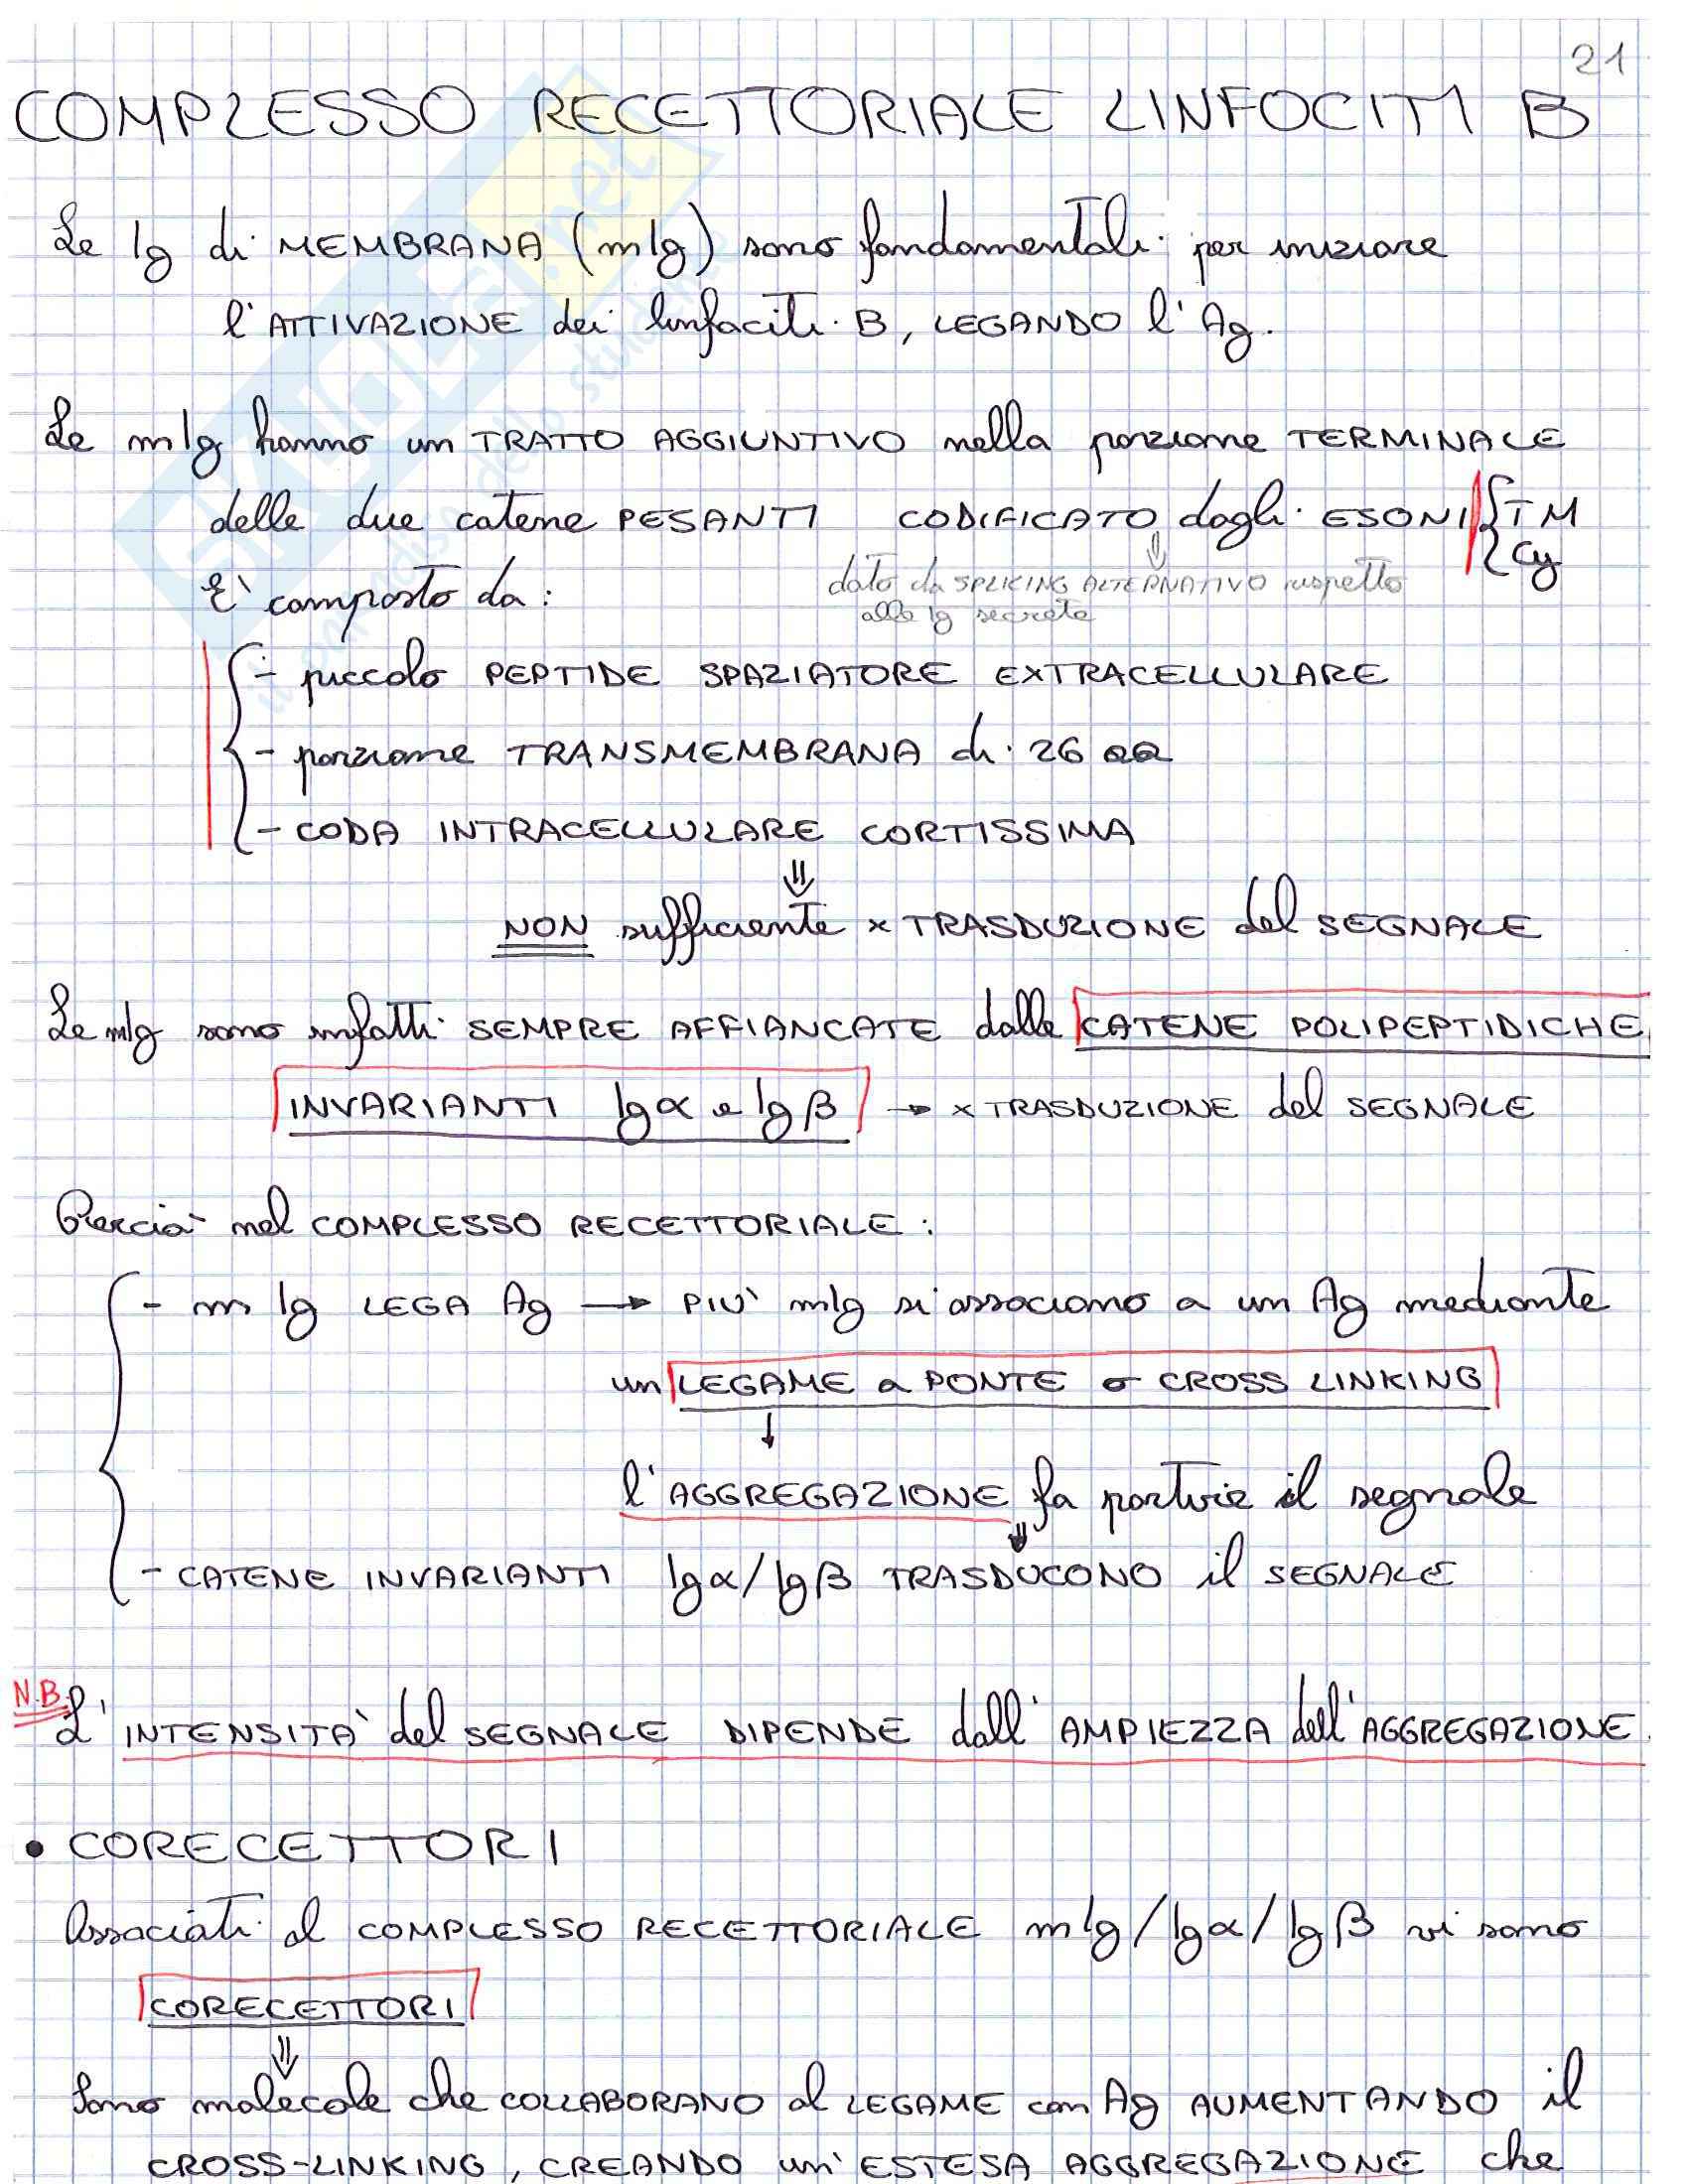 21
COMPLESSO RECETTORIALE LINFOCITI B
Le Ig di MEMBRANA (mIg) sono fondamentali per iniziare
l'ATTIVAZIONE dei linfociti B, LEGANDO l'Ag.
Le mIg hanno un TRATTO AGGIUNTIVO nella porzione TERMINALE
delle due catene PESANTI CODIFICATO dagli ESONI { TM
Cy
dato da SPLICING ALTERNATIVO rispetto
alle Ig secrete
E' composto da:
- piccolo PEPTIDE SPAZIATORE EXTRACELLULARE
- porzione TRANSMEMBRANA di 26 aa
- CODA INTRACELLULARE CORTISSIMA
⇓
NON sufficiente x TRASDUZIONE del SEGNALE
Le mIg sono infatti SEMPRE AFFIANCATE dalle CATENE POLIPEPTIDICHE
INVARIANTI Igα e Igβ → x TRASDUZIONE del SEGNALE
Perciò nel COMPLESSO RECETTORIALE:
- mIg LEGA Ag → PIU' mIg si associano a un Ag mediante
un LEGAME a PONTE o CROSS LINKING
↓
l'AGGREGAZIONE fa partire il segnale
⇓
- CATENE INVARIANTI Igα/Igβ TRASDUCONO il SEGNALE
N.B.
L'INTENSITA' del SEGNALE DIPENDE dall'AMPIEZZA dell'AGGREGAZIONE
• CORECETTORI
Associati al COMPLESSO RECETTORIALE mIg/Igα/Igβ vi sono
CORECETTORI
⇓
Sono molecole che COLLABORANO al LEGAME con Ag AUMENTANDO il
CROSS-LINKING, CREANDO un'ESTESA AGGREGAZIONE che
SKUOLA.net
il paradiso dello studente